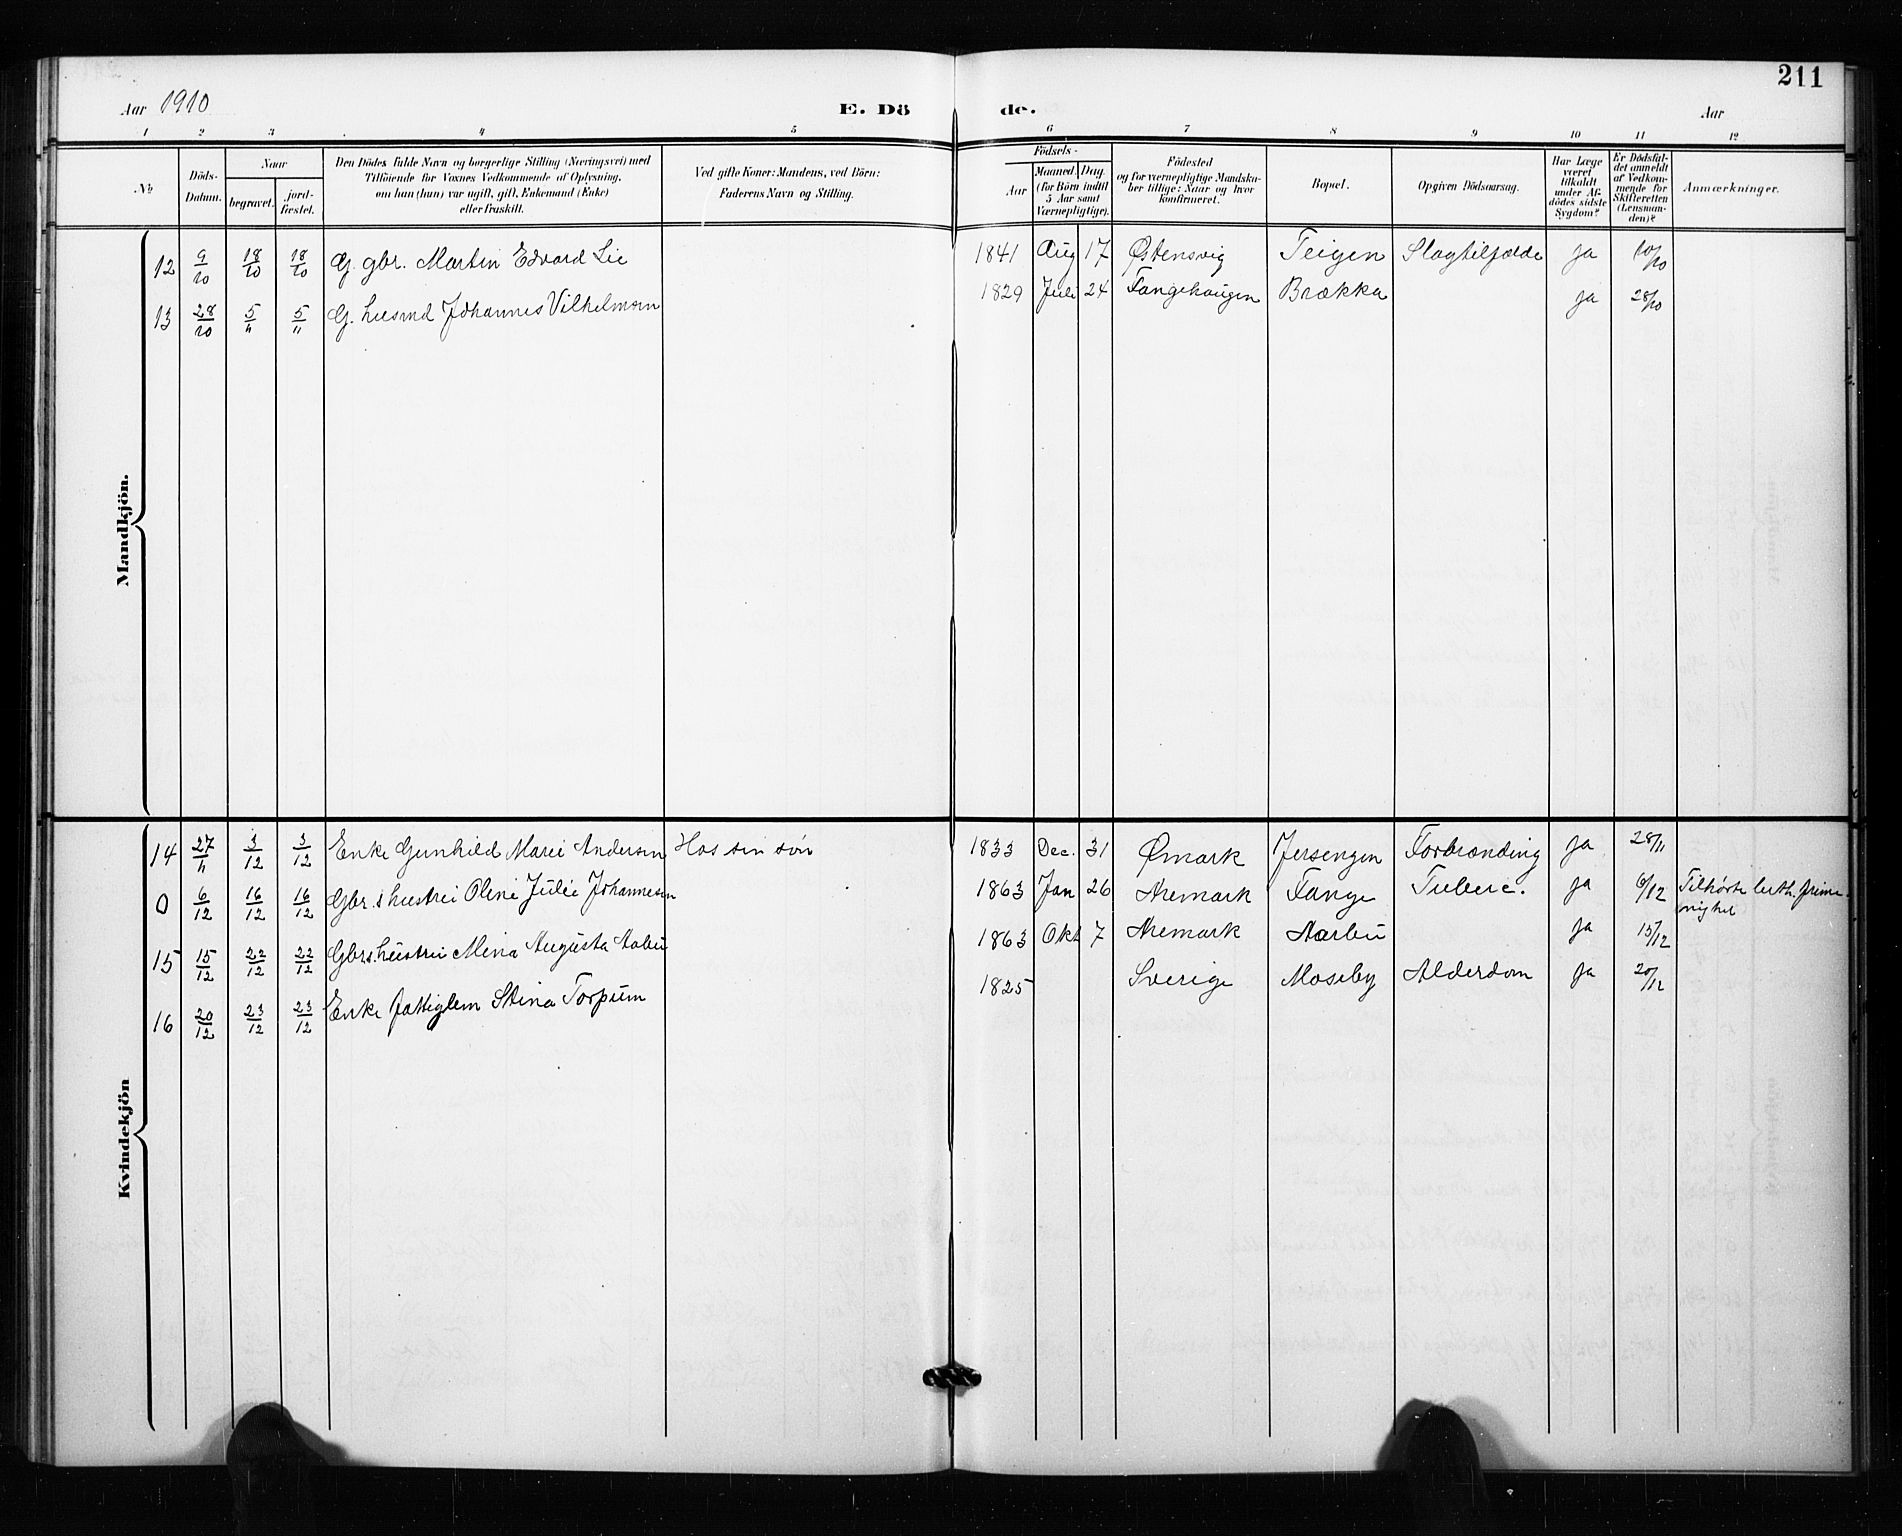 211
Aar 1910 E. Dö de. Aar
1 2 3 4 5 6 7 8 9 10 11 12
No
Döds-
Datum.
Naar
begravet.
jord-
fæstet.
Den Dödes fulde Navn og borgerlige Stilling (Næringsvei) med
Tilföiende for Voxnes Vedkommende af Oplysning,
om han (hun) var ugift, gift, Enkemand (Enke)
eller fraskilt.
Ved gifte Koner: Mandens, ved Börn:
Faderens Navn og Stilling.
Födsels-
Aar
Maaned. Dag.
(for Börn indtil
5 Aar samt
Værnepligtige).
Födested
og for værnepligtige Mandska-
ber tillige: Naar og hvor
konfirmeret.
Bopæl.
Opgiven Dödsaarsag.
Har Læge
været
tilkaldt
under Af-
dödes sidste
Sygdom?
Er Dödsfal-
det anmeldt
af Vedkom-
mende for
Skifteretten
(Lensman-
den)?
Anmærkninger.
Mandkjön.
12 9/10 18/10 18/10 G. gbr. Martin Edvard Lie 1841 Aug 17 Østensvig Teigen Slagtilfælde Ja 10/10
13 28/10 5/11 5/11 G. husmd Johannes Vilhelmsen 1829 Juli 24 Fangehaugen Brække Ja 28/10
Kvindekjön
14 27/11 3/12 3/12 Enke Gunhild Marie Andersen Hos sin søn 1833 Dec. 31 Ømark Jersengen Forbrænding Ja 28/11
0 6/12 16/12 16/12 Gbr.s hustru Oline Julie Johannesen 1863 Jan 26 Aremark Fange Tuberc. Ja 6/12 Tilhørte luth. frime-
nighet
15 15/12 22/12 22/12 Gbrs. hustru Mina Augusta Aabu 1863 Okt 7 Aremark Aarbu Ja 15/12
16 20/12 23/12 23/12 Enke fattiglem Stina Torpum 1825 Sverige Moseby Alderdom Ja 20/12